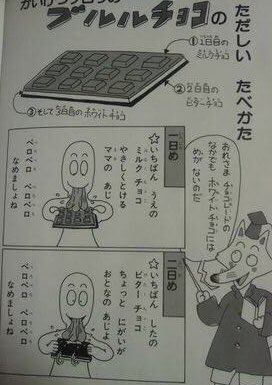 かいけつゾロリの
ブルルチョコの
ただしい たべかた
①1日目の
ミルクチョコ
②2日目の
ビターチョコ
③そして3日目のホワイトチョコ
おれさま チョコレートの
なかでも ホワイトチョコには
めが ないのだ
一日め
☆いちばん うえの
ミルク チョコ
やさしくとける
ママの あじ
ペロペロ
ペロペロ
なめましょね
二日め
☆いちばん したの
ビター チョコ
ちょっと にがいが
おとなの あじよ
ペロペロ
ペロペロ
なめましょね